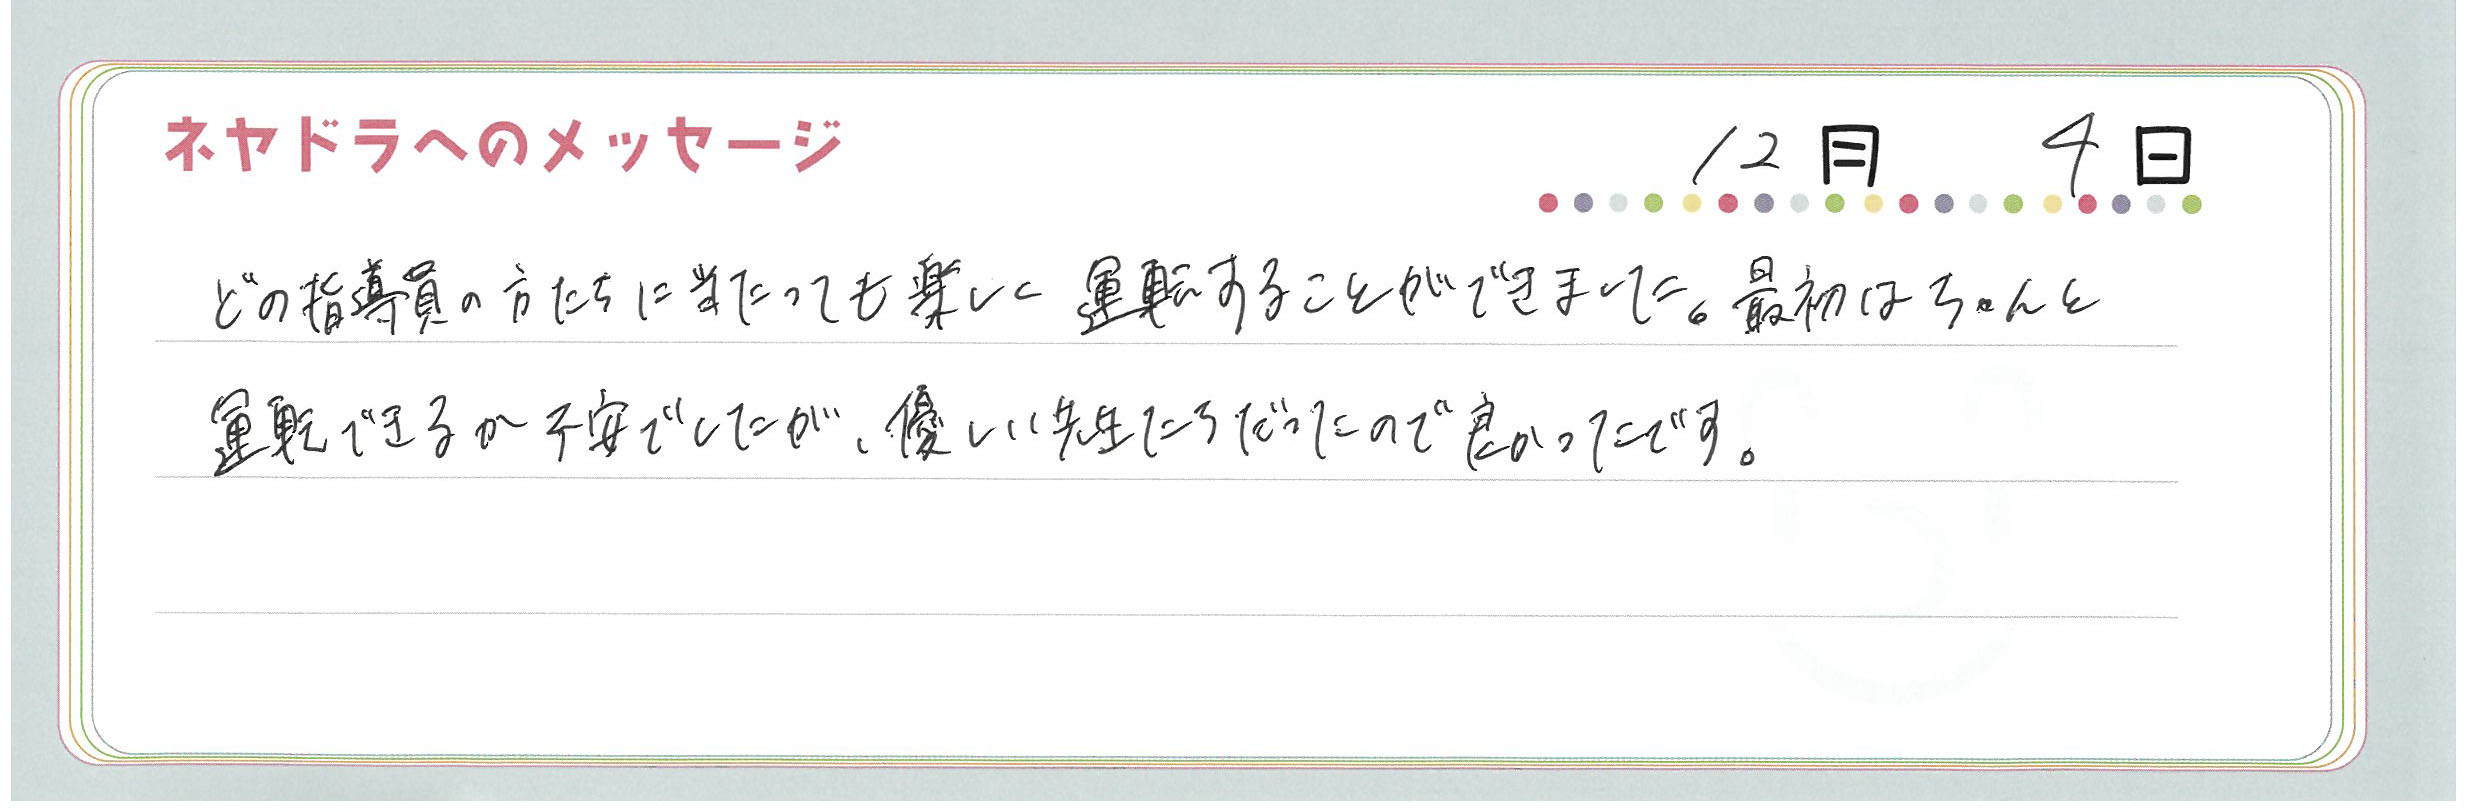 ネヤドラへのメッセージ
12月 4日
どの指導員の方たちに当たっても楽しく運転することができました。最初はちゃんと
運転できるか不安でしたが、優しい先生たちだったので良かったです。